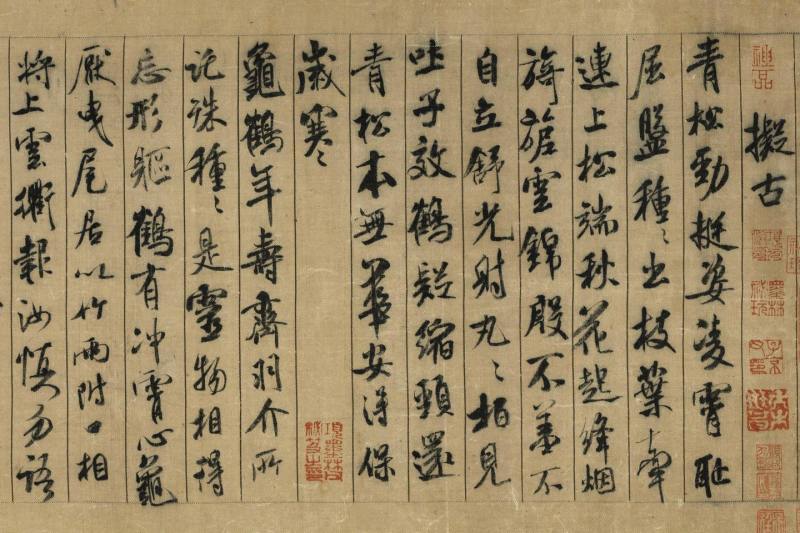 神品
擬古
青松勁挺姿凌霄恥
屈盤種〻出枝葉牽
連上松端秋花起絳烟
旖旎雲錦殷不羞不
自立舒光射丸〻柏見
吐子效鶴疑縮頸還
青松本無華安得保
歲寒
龜鶴年壽齊羽介所
託殊種〻是靈物相得
忘形軀鶴有冲霄心龜
厭曳尾居以竹兩附口相
將上雲衢報汝慎勿語